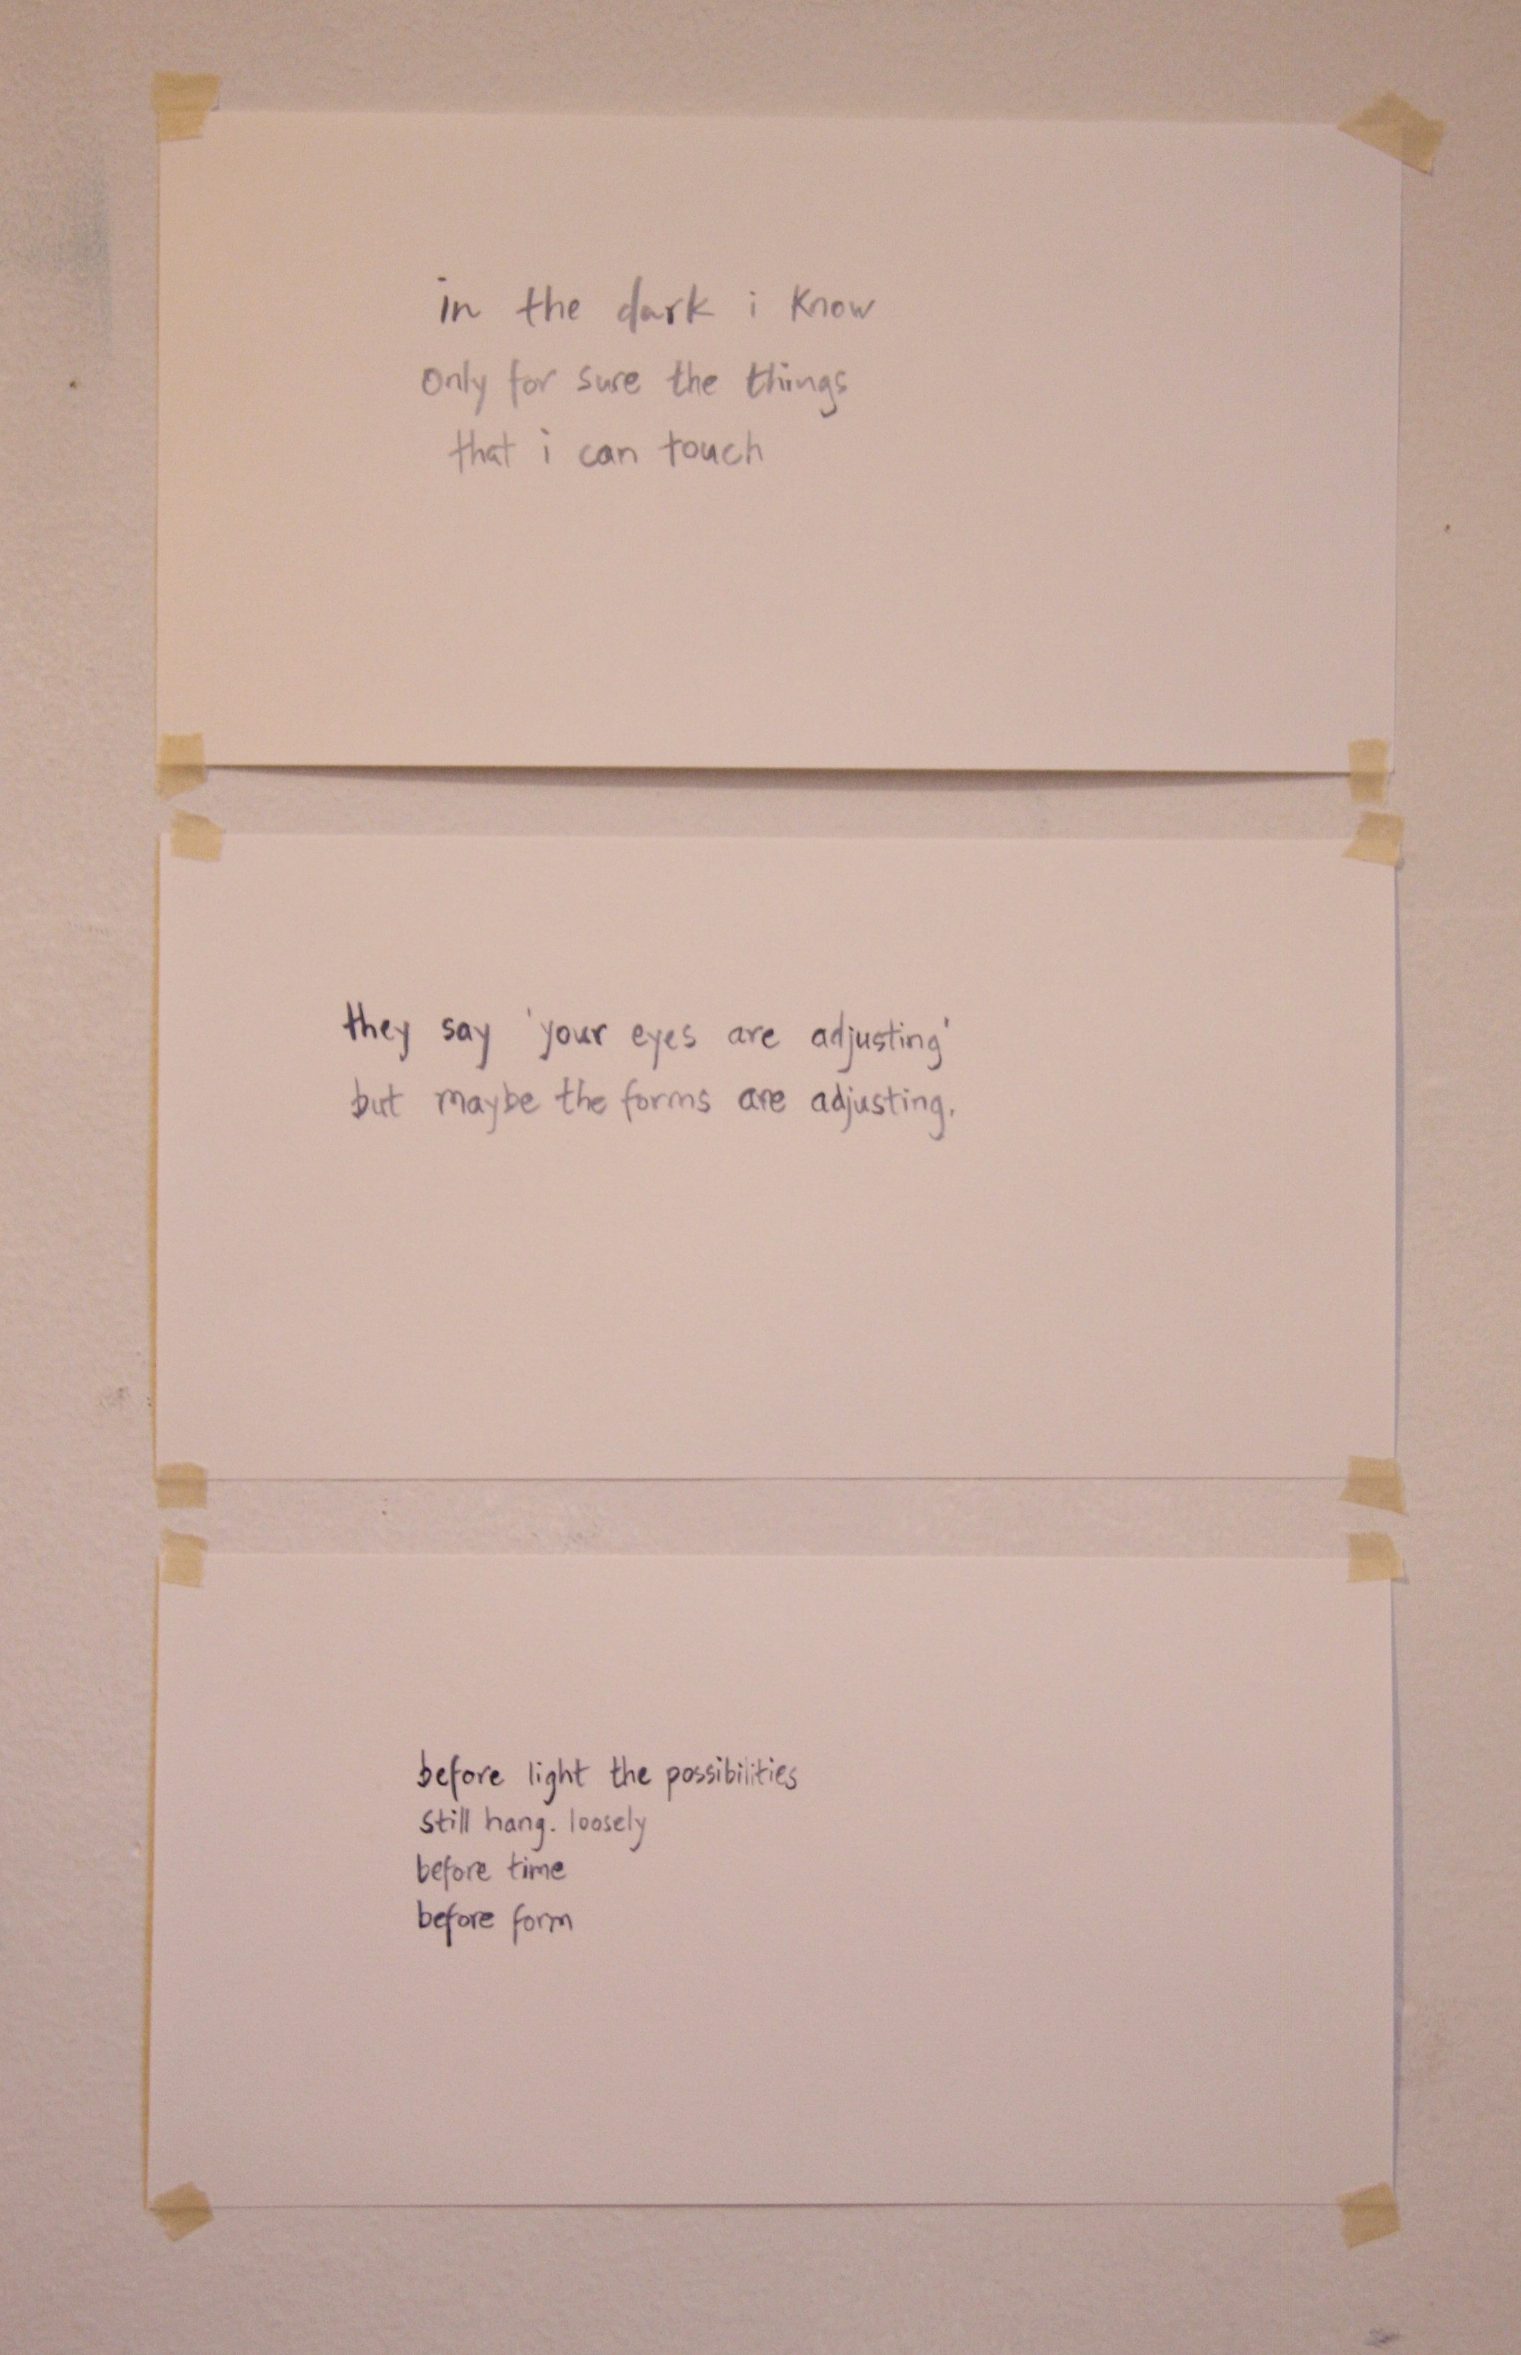 in the dark i know
only for sure the things
that i can touch
they say 'your eyes are adjusting'
but maybe the forms are adjusting.
before light the possibilities
still hang. loosely
before time
before form